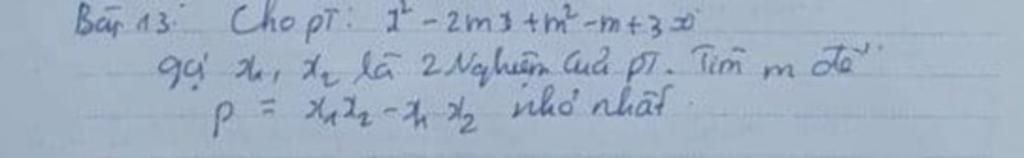 Bài 13: Cho pT: x² - 2mx + m² - m + 3 = 0
gọi x₁, x₂ là 2 Nghiệm của pT. Tìm m để
P = x₁x₂ - x₁ x₂ nhỏ nhất.